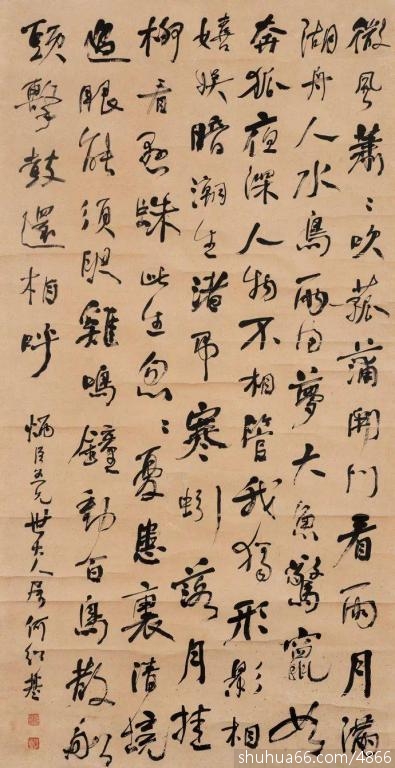 微風蕭〻吹菰蒲開門看雨月滿
湖舟人水鳥兩同夢大魚驚竄如
奔狐夜深人物不相管我獨形影相
嬉娛暗潮生渚吊寒蚓落月挂
柳看懸蛛此生忽〻憂患裏清境
過眼能須臾雞鳴鐘動百鳥散船
頭擊鼓還相呼
兄世大人屬 何紹基
shuhua66.com/4866